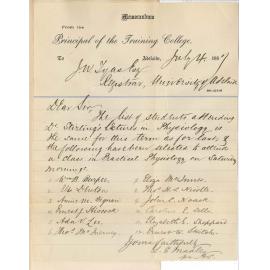 Memorandum
From the
Principal of the Training College.
To Adelaide, July 4 1887
J W Tyas Esq
Registrar, University of Adelaide
Dear Sir,
The list of students attending
Dr Stirling's Lectures in Physiology is
the same for this term as for last. &
the following have been selected to attend
a class in Practical Physiology on Saturday
mornings.
1 Wm B
2
3 Annie M.
4 Ernest J Hiscock
5 Ada F. Lee
6 Thos
7 Eliza McInnes
8 Thos H S Nicolle
9 John
10 Caroline E.
11 Elizabeth E. Sheppard
12 Ernest W.
Yours faithfully
L G Madley